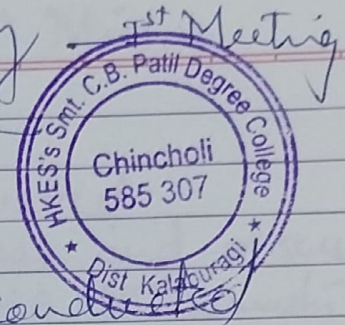 1st Meeting
HKES's Smt. C.B. Patil Degree College
Chincholi
585 307
★ Dist Kalaburagi ★
conducted